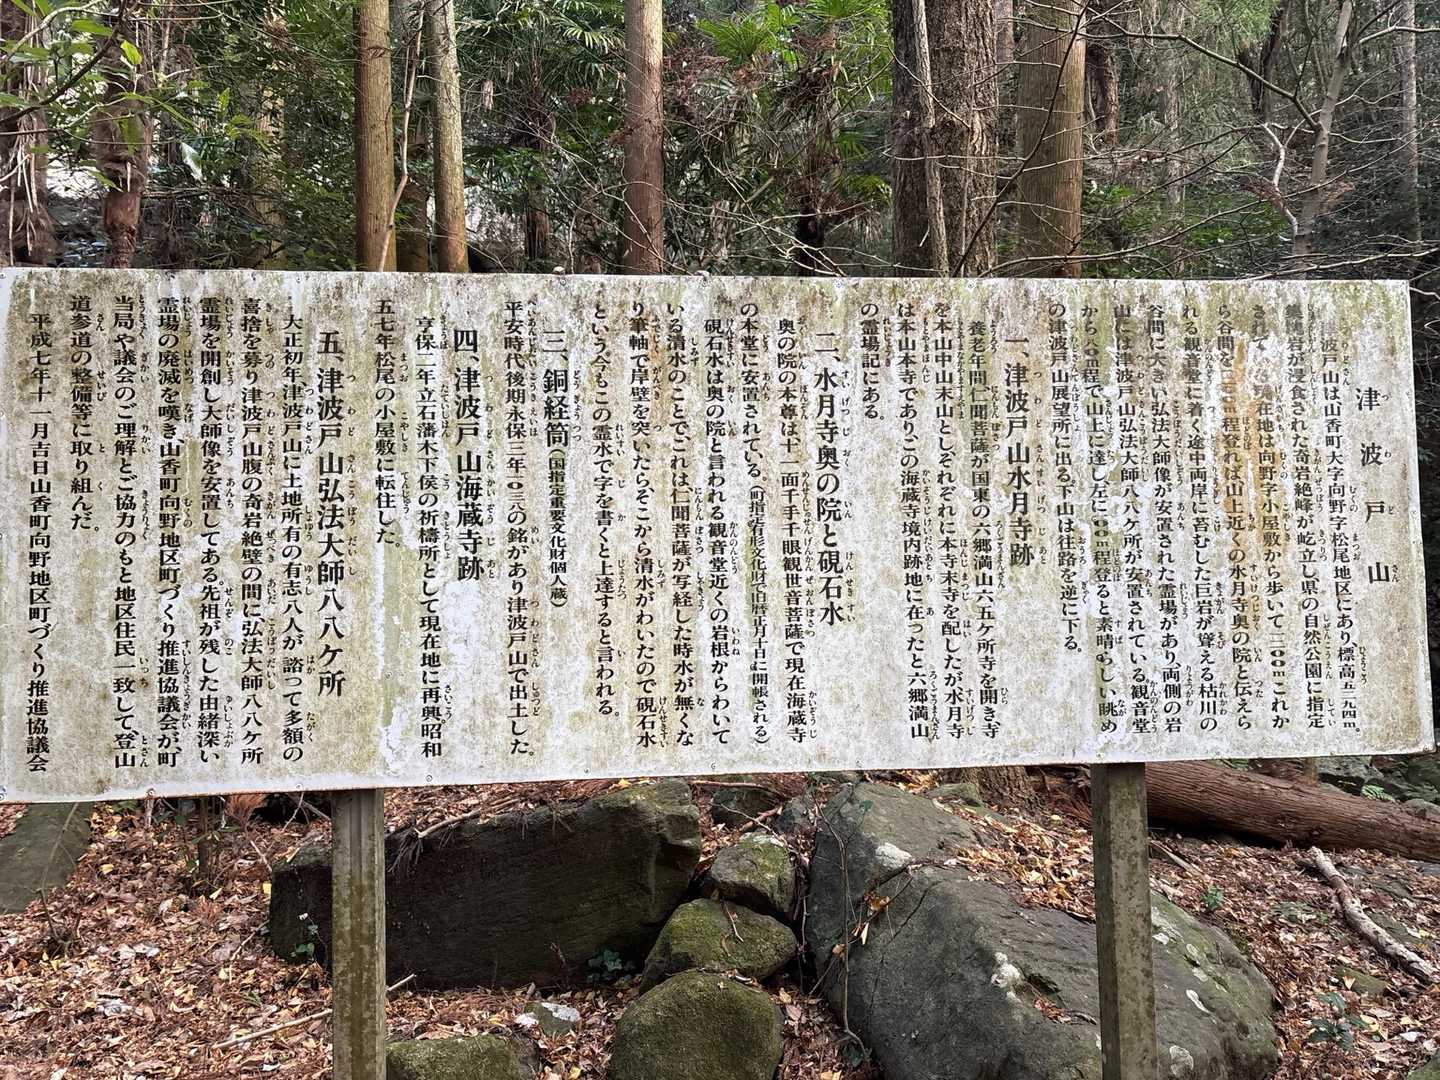 津波戸山
津波戸山は山香町大字向野字松尾地区にあり標高五二九四m。
集塊岩が浸食された奇岩絶峰が屹立し県の自然公園に指定
されて 現在地は向野字小屋敷から歩いて二〇〇mこれか
ら谷間を 程登れば山上近くの水月寺奥の院と伝えら
れる観音堂に着く途中両岸に苔むした巨岩が聳える枯川の
谷間に大きい弘法大師像が安置された霊場があり両側の岩
山には津波戸山弘法大師八八ケ所が安置されている観音堂
から 程で山上に達し左に 程登ると素晴らしい眺め
の津波戸山展望所に出る下山は往路を逆に下る。
一、津波戸山水月寺跡
養老年間仁聞菩薩が国東の六郷満山六五ケ所寺を開き寺
を本山中山末山としそれぞれに本寺末寺を配したが水月寺
は本山本寺でありこの海蔵寺境内跡地に在つたと六郷満山
の霊場記にある。
二、水月寺奥の院と硯石水
奥の院の本尊は十一面千手千眼観世音菩薩で現在海蔵寺
の本堂に安置されている。(町指定有形文化財で旧暦正月十日に開帳される)
硯石水は奥の院と言われる観音堂近くの岩根からわいて
いる清水のことでこれは仁聞菩薩が写経した時水が無くな
り筆軸で岸壁を突いたらそこから清水がわいたので硯石水
という今もこの霊水で字を書くと上達すると言われる。
三、銅経筒(国指定重要文化財個人蔵)
平安時代後期永保三年一〇八三の銘があり津波戸山で出土した。
四、津波戸山海蔵寺跡
亨保二年立石藩木下侯の祈檮所として現在地に再興。昭和
五七年松尾の小屋敷に転住した。
五、津波戸山弘法大師八八ケ所
大正初年津波戸山に土地所有の有志八人が諮って多額の
喜捨を募り津波戸山腹の奇岩絶壁の間に弘法大師八八ケ所
霊場を開創し大師像を安置してある。先祖が残した由緒深い
霊場の廃滅を嘆き、山香町向野地区町づくり推進協議会が、町
当局や議会のご理解とご協力のもと地区住民一致して、登山
道参道の整備等に取り組んだ。
平成七年十一月吉日山香町向野地区町づくり推進協議会